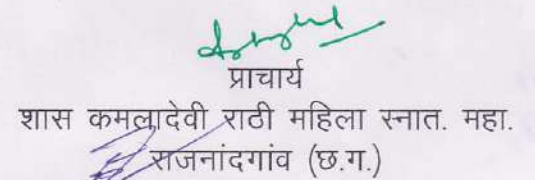 प्राचार्य
शास कमलादेवी राठी महिला स्नात. महा.
राजनांदगांव (छ.ग.)